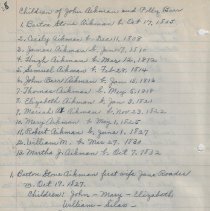 Children of John Aikman and Polly Barr
1. Barton Stone Aikman b. Oct 17, 1805
2. Aikman b. Dec 11, 1808
3. James Aikman b. Jan 17, 1810
4. Hugh Aikman b. Mar 12, 1812
5. Samuel Aikman b. Feb 28, 1814
6. John Barr Aikman b. Jan 15, 1816
7. Thomas Aikman b. May 5, 1818
8. Elizabeth Aikman b. Jan 3, 1821
9. Aikman b. Nov 23, 1822
10. Mary Aikman b. May 1, 1825
11. Robert Aikman b. June 1, 1827
12. William M. b. Mar 27, 1830
13. Martha J. Aikman b. Oct 7, 1832
1. Barton Stone Aikman first wife Jane
m. Oct 19, 1827.
Children: John - Mary - Elizabeth
William - Silas -